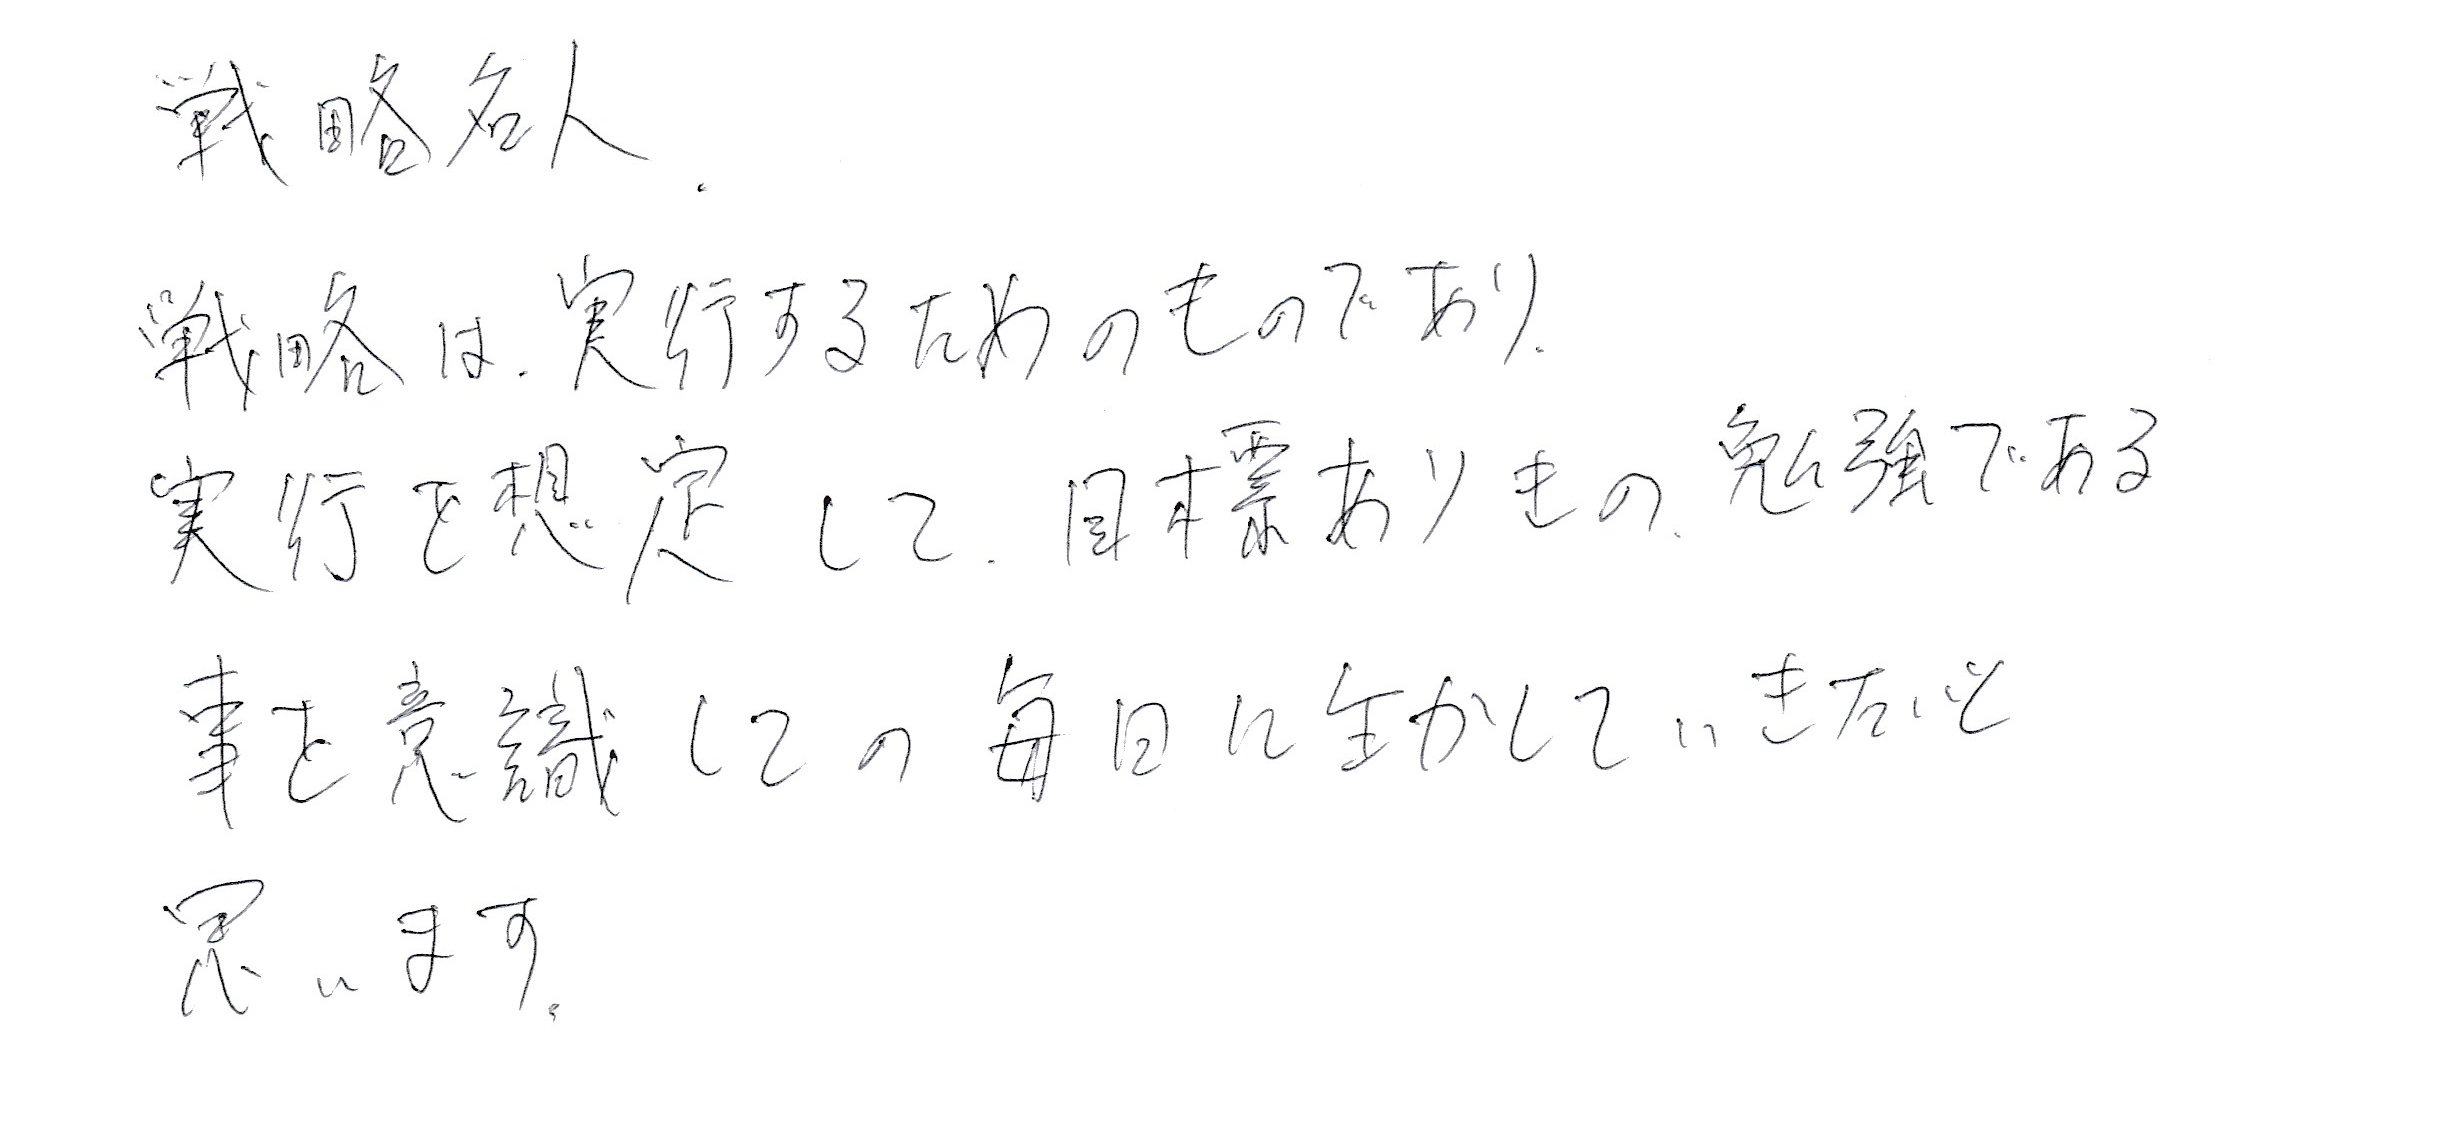 戦略名人.
戦略は.実行するためのものであり.
実行を想定して.目標ありきの.勉強である
事を意識しての毎日に生かしていきたいと
思います.